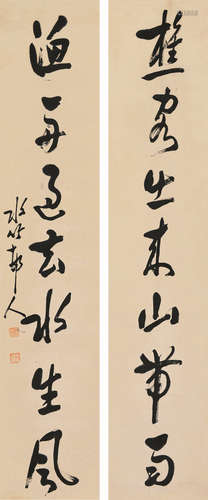 樵客出来山带雨
渔舟过去水生风
水竹邨人